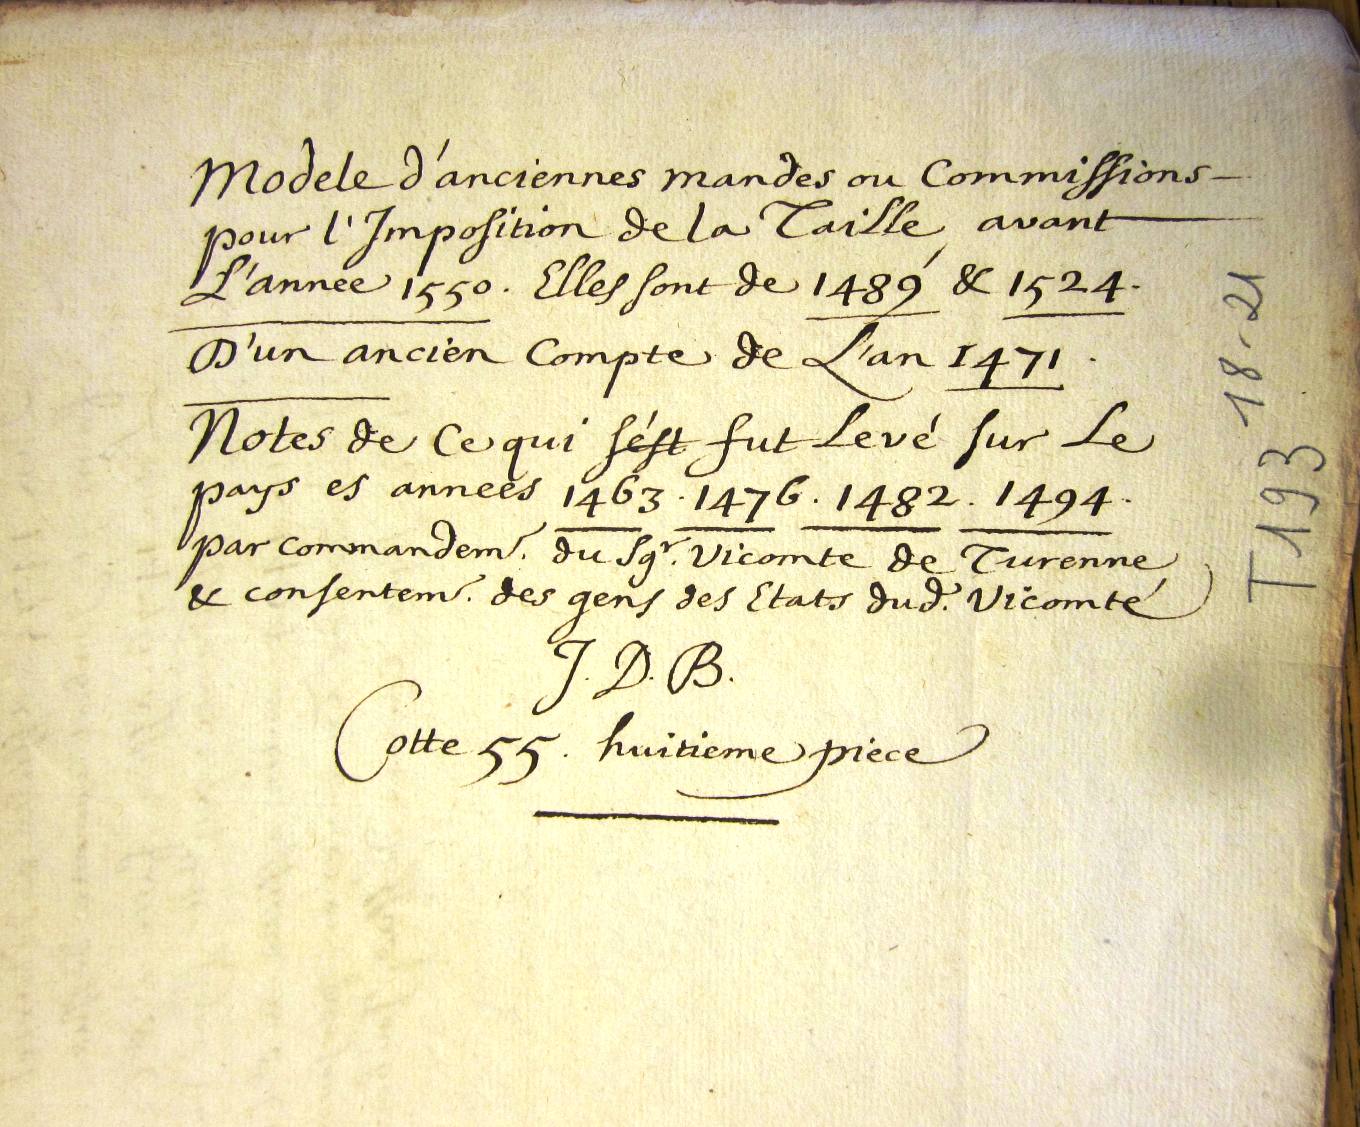 Modele d'anciennes mandes ou Commissions
pour l'Imposition de la Taille avant
L'année 1550. Elles sont de 1489 & 1524.
D'un ancien Compte de L'an 1471.
Notes de Ce qui s'ést fut Levé sur Le
pays es années 1463. 1476. 1482. 1494.
par commandemt. du Sgr. Vicomte de Turenne
& consentemt. des gens des Etats dud. Vicomté
J. D. B.
Cotte 55. huitieme piece
T 193 18-21